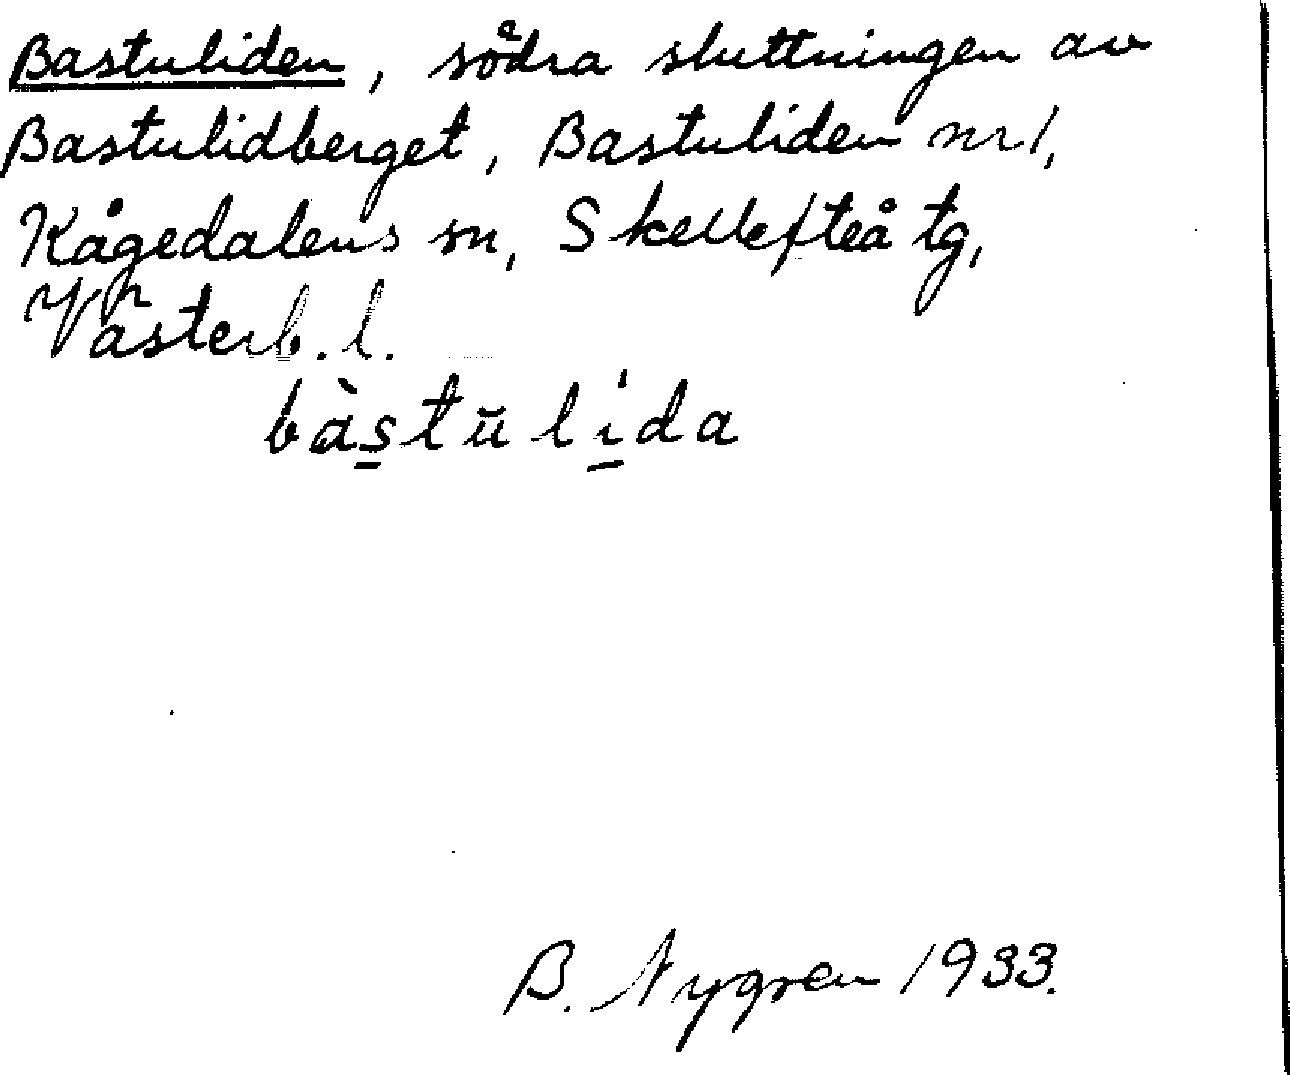 Bastuliden, södra sluttningen av
Bastulidberget, Bastuliden nr 1,
Kågedalens sn, Skellefteå tg,
Västerb. l.
bàs̲tŭlí̲da
B. Nygren 1933.